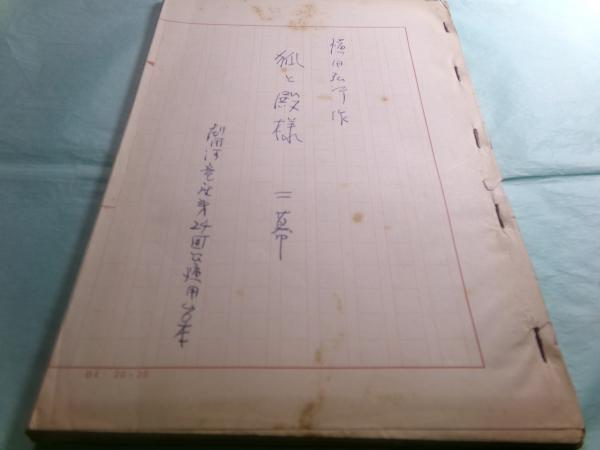 横田弘行作
狐と殿様 二幕
劇団河童座第24回公演用台本
B4 20×20